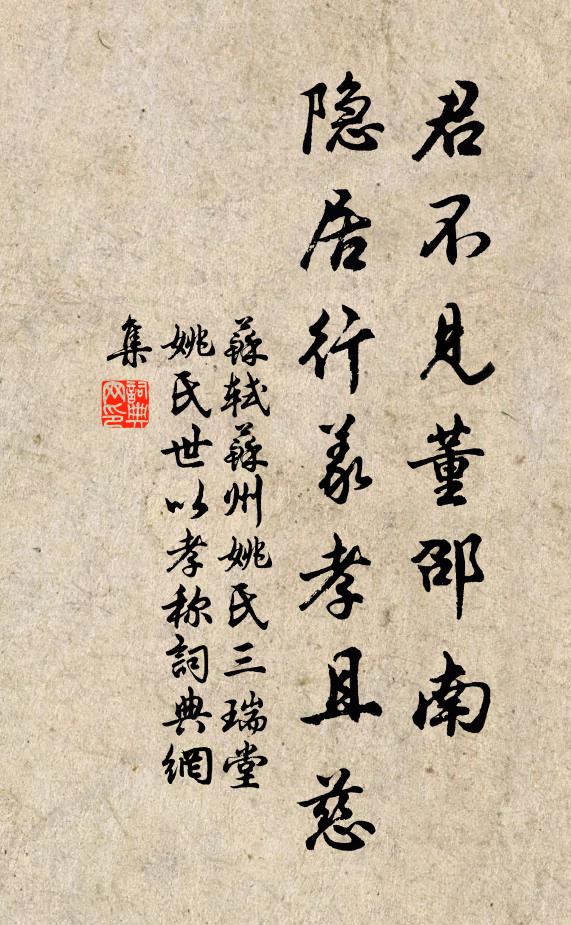 君不见董邵南
隐居行义孝且慈
蘇軾蘇州姚氏三瑞堂
姚氏世以孝称詞典網
集
詞典
网印